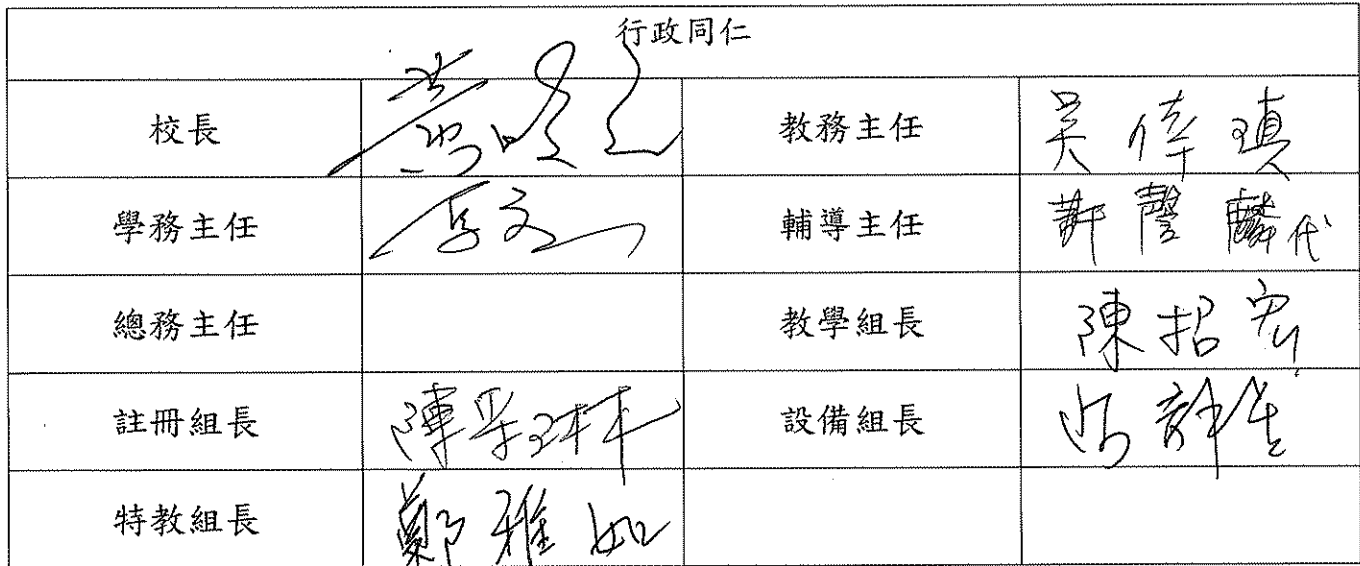 行政同仁
校長 教務主任 吳倖瑱
學務主任 輔導主任 代
總務主任 教學組長 陳招宏
註冊組長 陳 設備組長
特教組長 鄭雅如